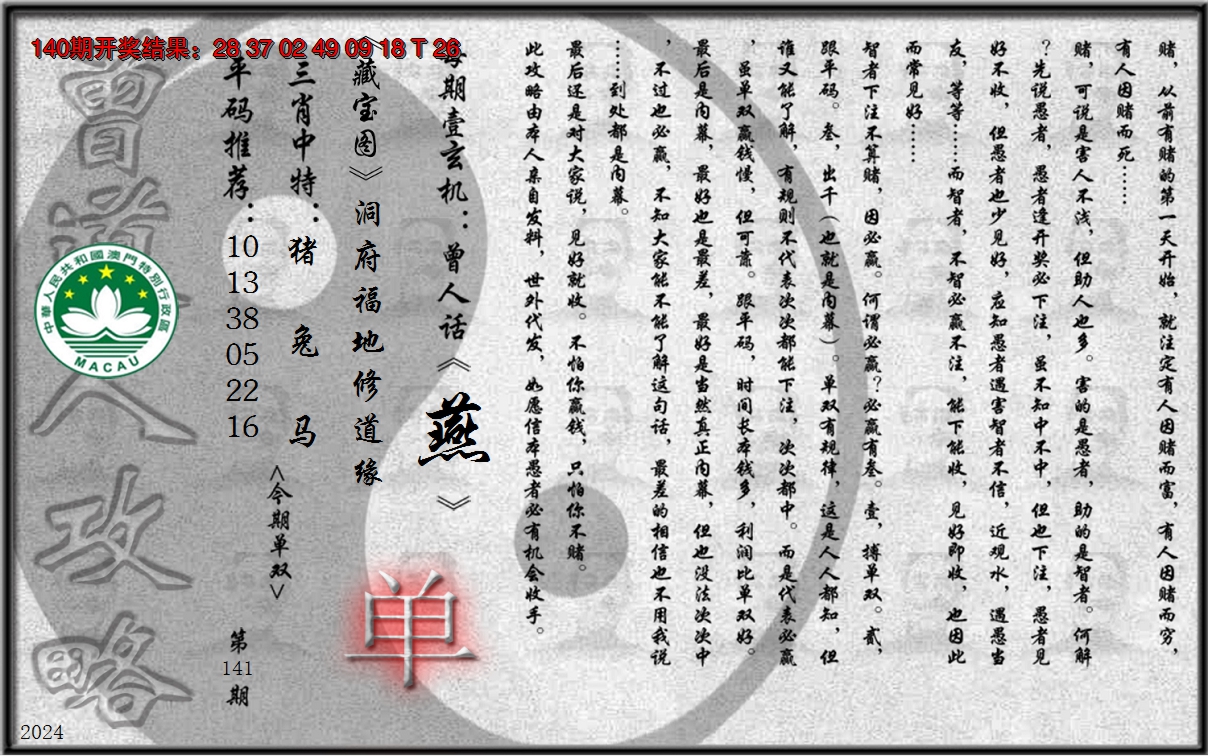 140期开奖结果：28 37 02 49 09 18 T 26
赌，从前有赌的第一天开始，就注定有人因赌而富，有人因赌而穷，
有人因赌而死……
赌，可说是害人不浅，但助人也多。害的是愚者，助的是智者。何解
？先说愚者，愚者逢开奖必下注，虽不知中不中，但也下注，愚者见
好不收，但愚者也少见好，应知愚者遇害智者不信，近观水，遇愚当
友，等等……而智者，不智必赢不注，能下能收，见好即收，也因此
而常见好……
智者下注不算赌，因必赢。何谓必赢？必赢有叁。壹，搏单双。贰，
跟平码。叁，出千（也就是内幕）。单双有规律，这是人人都知，但
谁又能了解，有规则不代表次次都能下注，次次都中。而是代表必赢
，虽单双赢钱慢，但可靠。跟平码，时间长本钱多，利润比单双好。
最后是内幕，最好也是最差，最好是当然真正内幕，但也没法次次中
，不过也必赢，不知大家能不能了解这句话，最差的相信也不用我说
……到处都是内幕。
最后还是对大家说，见好就收。不怕你赢钱，只怕你不赌。
此攻略由本人亲自发料，世外代发，如愿信本愚者必有机会收手。
每期壹玄机：曾人话《燕》
《藏宝图》洞府福地修道缘
单
三肖中特：猪 兔 马
<今期单双>
平码推荐：10 13 38 05 22 16
第141期
曾道人攻略
中華人民共和國澳門特別行政區
MACAU
2024